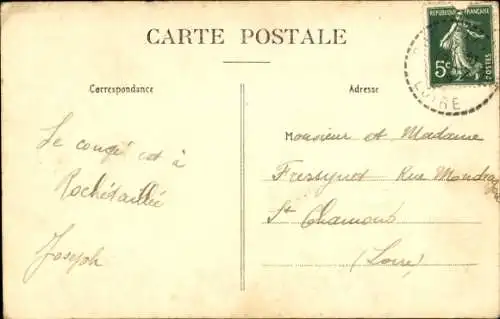 CARTE POSTALE
RÉPUBLIQUE FRANÇAISE
5c
POSTES
LOIRE
Correspondance
Adresse
Le congé est à
Rochétaillée
Joseph
Monsieur et Madame
Fressynet Rue
St Chamond
(Loire)